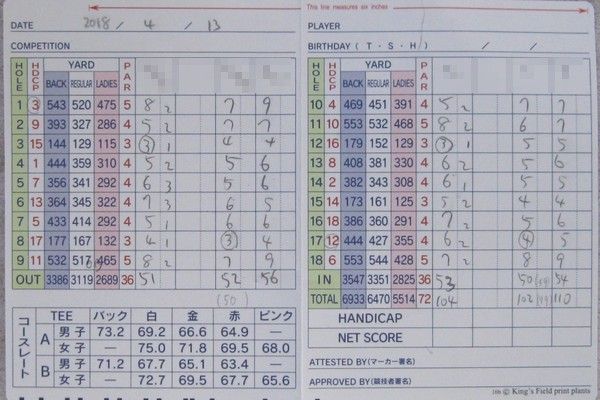 This line measures six inches
DATE 2018 / 4 / 13
PLAYER
COMPETITION
BIRTHDAY ( T ・ S ・ H ) / /
HOLE HDCP YARD PAR
BACK REGULAR LADIES
1 3 543 520 475 5 8 2 7 9
2 9 393 327 286 4 5 2 7 7
3 15 144 129 115 3 3 1 4 4
4 1 444 359 310 4 5 2 5 6
5 7 356 341 292 4 6 3 5 6
6 13 364 345 322 4 7 3 6 5
7 5 433 414 292 4 5 1 6 6
8 17 177 167 132 3 4 1 3 4
9 11 532 517 465 5 8 2 7 9
OUT 3386 3119 2689 36 51 52 56
(50)
HOLE HDCP YARD PAR
BACK REGULAR LADIES
10 4 469 451 391 4 5 2 7 7
11 10 553 532 468 5 8 2 6 7
12 16 179 152 129 3 3 1 5 5
13 8 408 381 330 4 6 2 5 6
14 2 382 343 308 4 6 1 5 5
15 14 173 161 125 3 5 2 4 4
16 18 386 360 291 4 7 2 5 6
17 12 444 427 355 4 6 2 4 5
18 6 553 544 428 5 7 2 8 9
IN 3547 3351 2825 36 53 50 54
TOTAL 6933 6470 5514 72 104 102 110
HANDICAP
NET SCORE
コースレート
TEE バック 白 金 赤 ピンク
A 男子 73.2 69.2 66.6 64.9 —
女子 — 75.0 71.8 69.5 68.0
B 男子 71.2 67.7 65.1 63.4 —
女子 — 72.7 69.5 67.7 65.6
ATTESTED BY(マーカー署名)
APPROVED BY(競技者署名)
© King's Field print plants